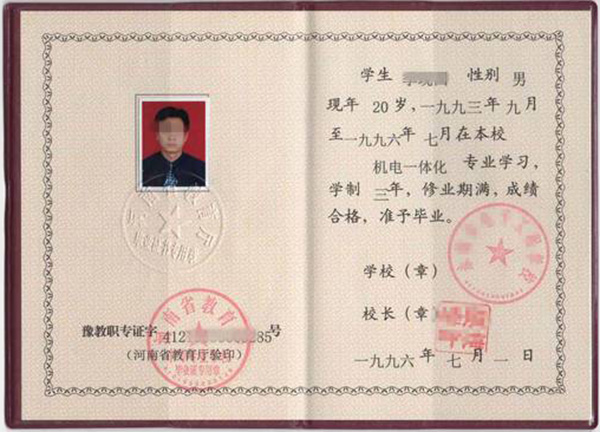 豫教职专证字412 285号
(河南省教育厅验印)
河南省教育
毕业证专用章
学生 性别 男
现年 20 岁,一九九三年 九月
至一九九六年 七月在本校
机电一体化 专业学习,
学制 三年,修业期满,成绩
合格,准予毕业。
学校(章)
校长(章)
一九九六 年 七 月 一 日